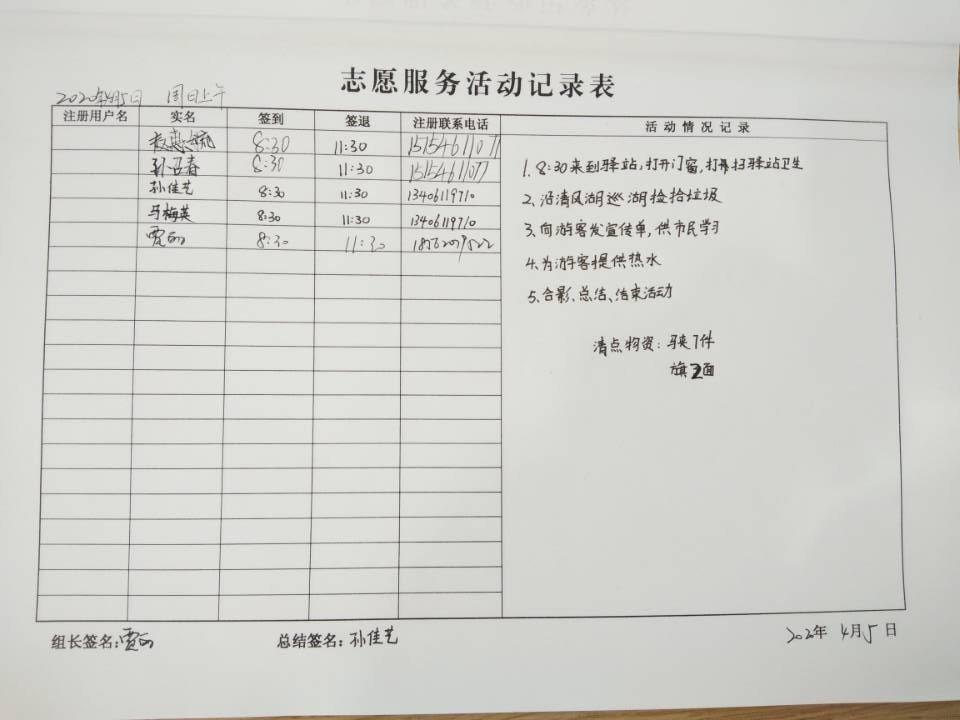 志愿服务活动记录表
2020年4月5日 周日上午
注册用户名 实名 签到 签退 注册联系电话 活动情况记录
8:30 11:30 15154611077
孙召春 8:30 11:30 15154611077
孙佳艺 8:30 11:30 13406119710
马梅英 8:30 11:30 13406119710
贾 8:30 11:30
1、8:30来到驿站,打开门窗,打扫驿站卫生
2、沿清风湖巡湖捡拾垃圾
3、向游客发宣传单,供市民学习
4、为游客提供热水
5、合影、总结、结束活动
清点物资:马夹7件
旗2面
组长签名:贾 总结签名:孙佳艺 2020年4月5日